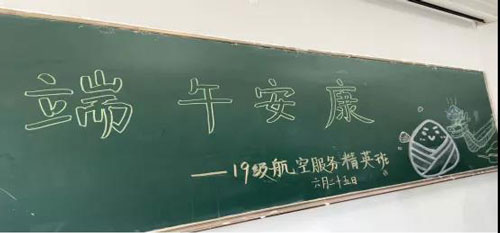 端午安康
——19级航空服务精英班
六月二十五日